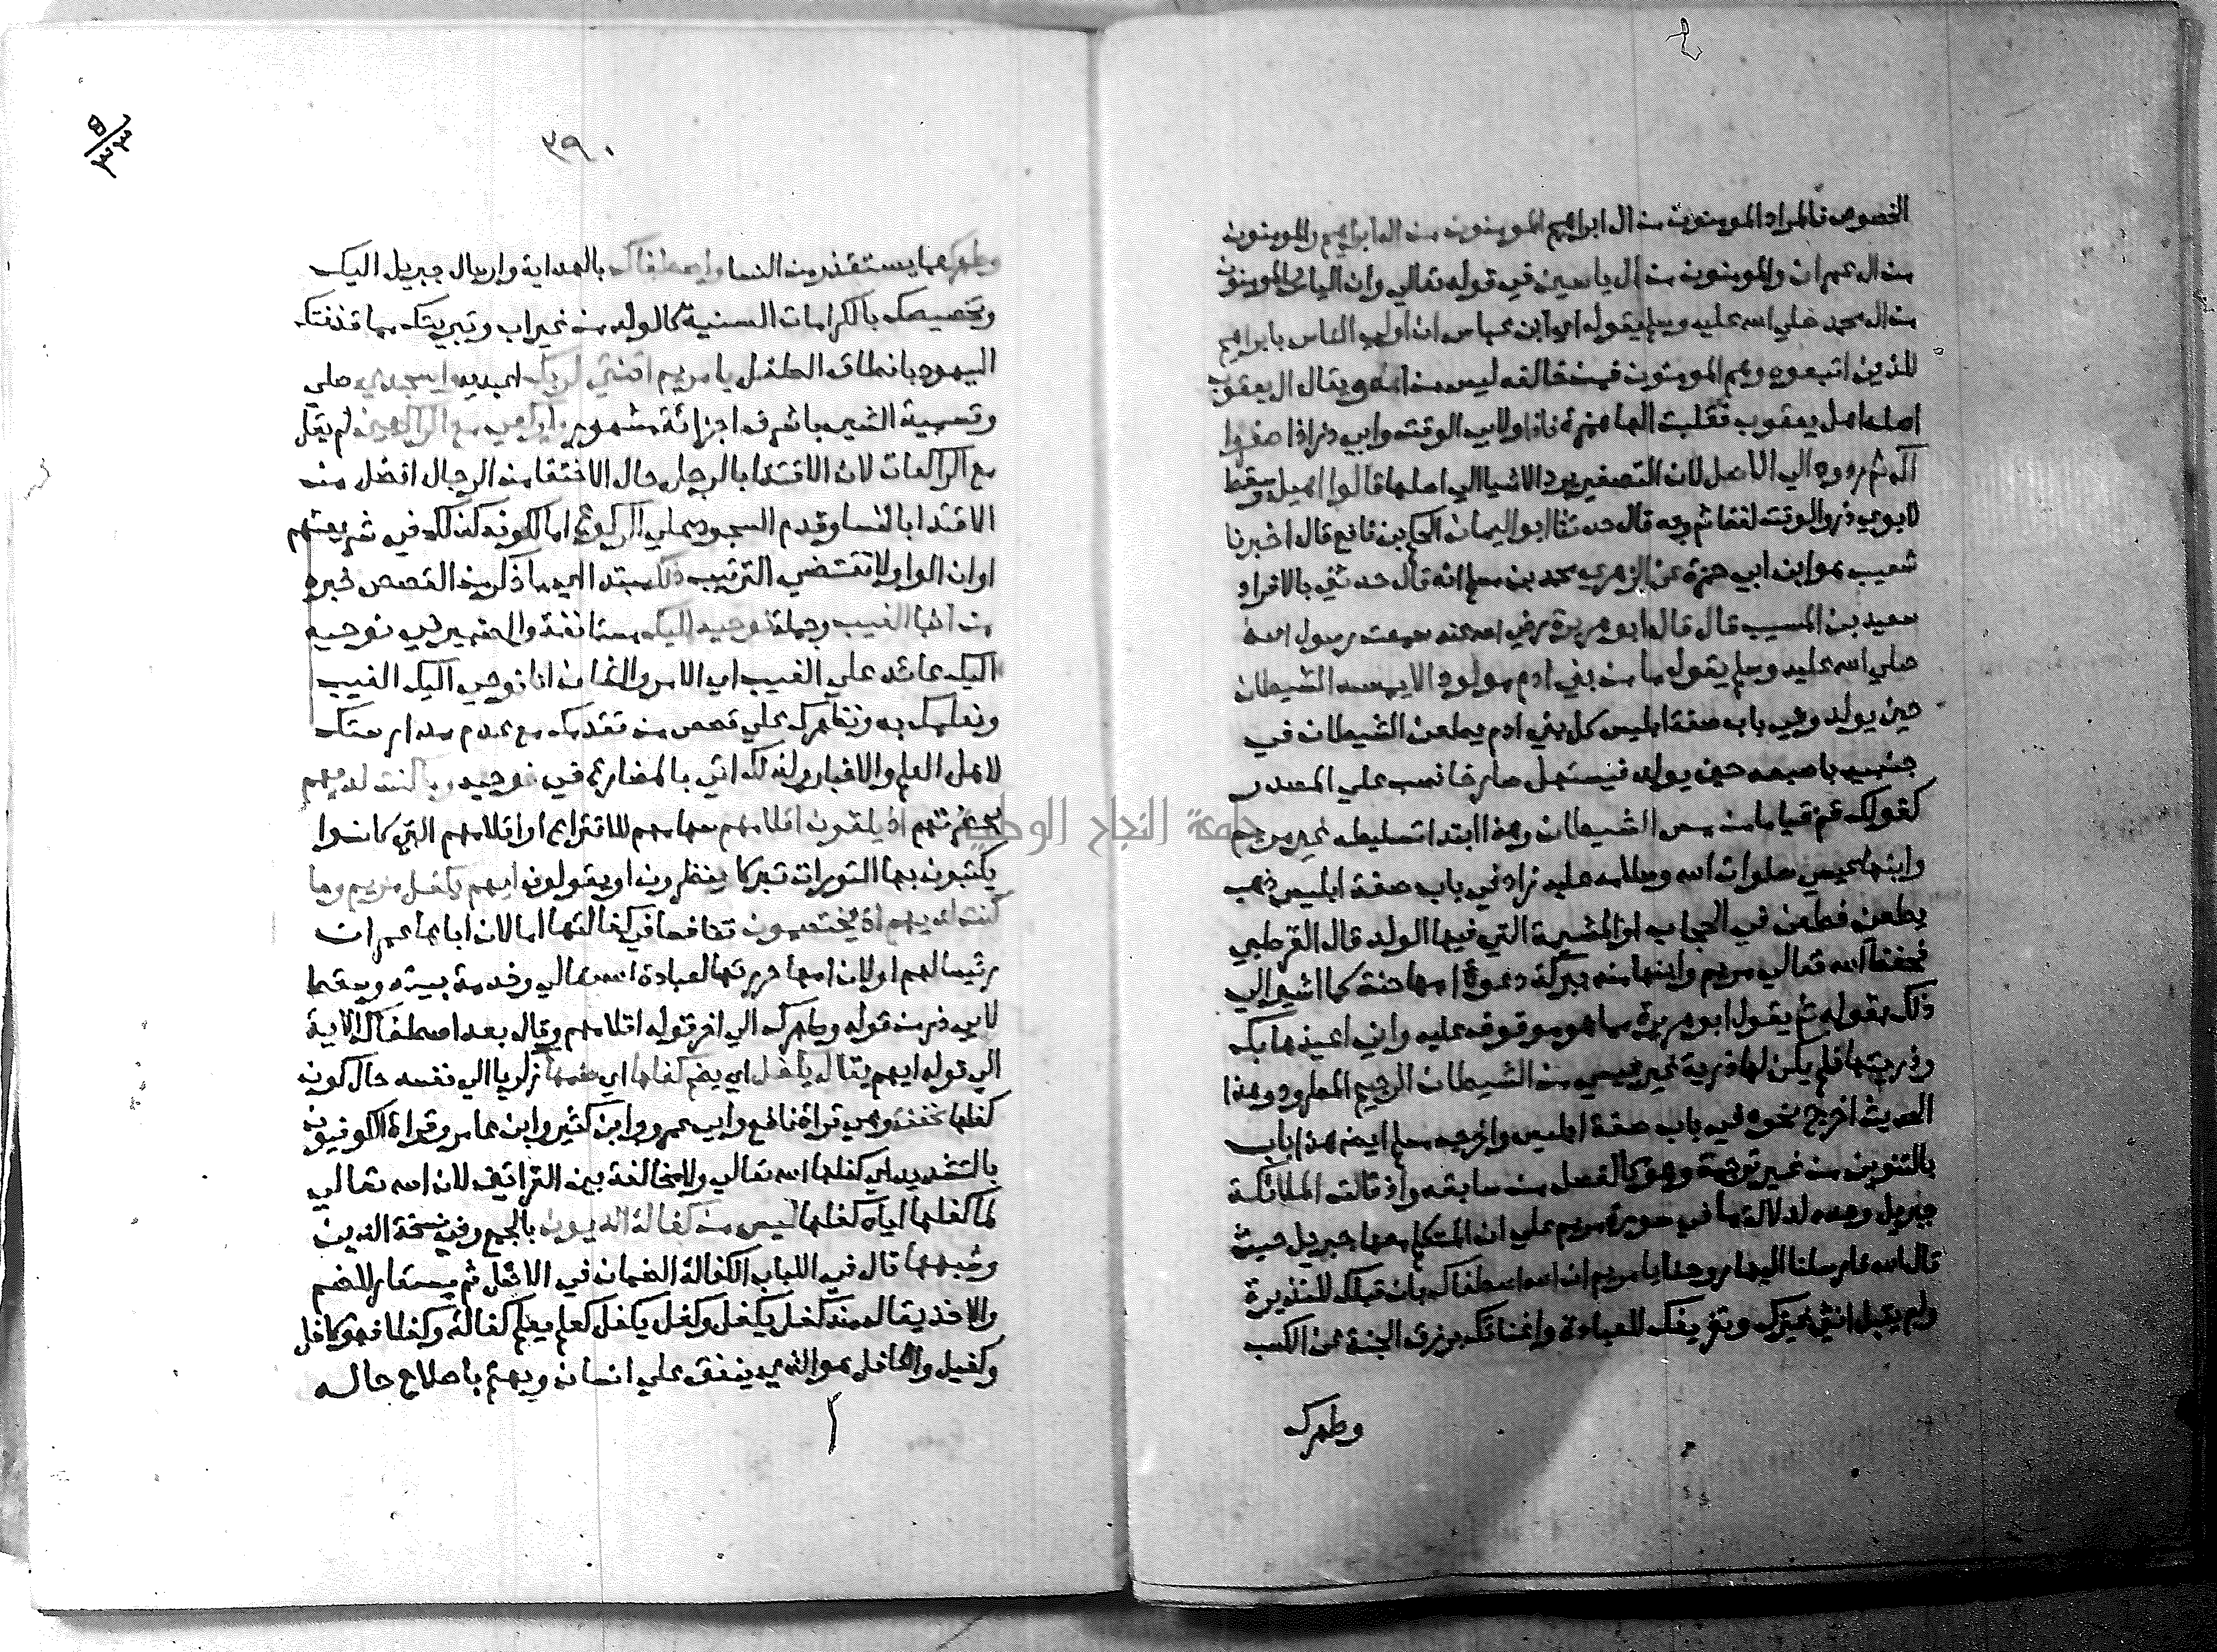 الخصوص فالمراد المومنون من ال ابراهيم المومنون من ال ابراهيم والمومنون
من ال عمران والمومنون من ال ياسين في قوله تعالي وان الياس والمومنون
من ال محمد صلي الله عليه وسلم يقول اي ابن عباس ان اولي الناس بابراهيم
للذين اتبعوه وهم المومنون فمن خالفه ليس من اله ويقال ال يعقوب
اصله اهل يعقوب فقلبت الها همزة فاذا ولابي الوقت وابي ذر اذا صغروا
ال ثم ردوه الي الاصل لان التصغير يرد الاشيا الي اصلها قالوا اهيل وسقط
لابوي ذر والوقت لفظ ثم وبه قال حدثنا ابو اليمان الحكم بن نافع قال اخبرنا
شعيب هو ابن ابي حمزة عن الزهري محمد بن مسلم انه قال حدثني بالافراد
سعيد بن المسيب قال قال ابو هريرة رضي الله عنه سمعت رسول الله
صلي الله عليه وسلم يقول ما من بني ادم مولود الا يمسه الشيطان
حين يولد وفي باب صفة ابليس كل بني ادم يطعن الشيطان في
جنبيه باصبعه حين يولد فيستهل صارخا نصب علي المصدر
كقولك قم قياما من مس الشيطان وهذا ابتدا تسليطه غير مريم
وابنها عيسي صلوات الله وسلامه عليه زاد في باب صفة ابليس ذهب
يطعن فطعن في الحجاب اي المشيمة التي فيها الولد قال القرطبي
فحفظ الله تعالي مريم وابنها منه ببركة دعوة امها حنة كما اشير الي
ذلك بقوله ثم يقول ابو هريرة مما هو موقوف عليه واني اعيذها بك
وذريتها فلم يكن لها ذرية غير عيسي من الشيطان الرجيم المطرود وهذا
الحديث اخرج نحوه في باب صفة ابليس واخرجه مسلم ايضا هذا باب
بالتنوين من غير ترجمة وهو كالفصل من سابقه واذ قالت الملائكة
جبريل وحده لدلالة ما في سورة مريم علي ان المتكلم معها جبريل حيث
قال الله فارسلنا اليها روحنا يا مريم ان الله اصطفاك بان قبلك للنذيرة
ولم يقبل انثي غيرك وتفريغك للعبادة واغنائك برزق الجنة عن الكسب
وطهرك
٣٩٠
وطهرك مما يستقذر من النسا واصطفاك بالهداية وارسال جبريل اليك
وتخصيصك بالكرامات السنية كالولد من غير اب وتبريتك مما قذفتك
اليهود بانطاق الطفل يا مريم اقنتي لربك اعبديه واسجدي صلي
وتسمية الشي باشرف اجزائه مشهور واركعي مع الراكعين لم يقل
مع الراكعات لان الاقتدا بالرجل حال الاختفا من الرجال افضل من
الاقتدا بالنسا وقدم السجود علي الركوع اما لكونه كذلك في شريعتهم
او ان الواو لا تقتضي الترتيب ذلك مبتدا اي ما ذكر من القصص خبره
من انبا الغيب وجملة نوحيه اليك مستانفة والضمير في نوحيه
اليك عائد علي الغيب اي الامر والشان انا نوحي اليك الغيب
ونعلمك به ونظهرك علي قصص من تقدمك مع عدم مدارستك
لاهل العلم والاخبار ولذلك اتي بالمضارع في نوحيه وما كنت لديهم
بحضرتهم اذ يلقون اقلامهم سهامهم للاقتراع او اقلامهم التي كانوا
يكتبون بها التوراة تبركا ينظرون او يقولون ايهم يكفل مريم وما
كنت لديهم اذ يختصمون تنافسا في كفالتها اما لان اباها عمران
رئيسا لهم او لان امها حررتها لعبادة الله تعالي وخدمة بيته وسقط
لابي ذر من قوله وطهرك الي اخر قوله اقلامهم وقال بعد اصطفاك الاية
الي قوله ايهم يقال يكفل اي يضم كفلها اي ضمها زكريا الي نفسه حال كون
كفلها مخففة وهي قراة نافع وابي عمرو وابن كثير وابن عامر وقراة الكوفيون
بالتشديد اي كفلها الله تعالي ولا مخالفة بين القراتين لان الله تعالي
لما كفلها اياه كفلها ليس من كفالة الديون بالجمع وفي نسخة الدين
وشبهها قال في اللباب الكفالة الضمان في الاصل ثم يستعار للضم
والاخذ يقال منه كفل يكفل وكفل يكفل كعلم يعلم كفالة وكفلا فهو كافل
وكفيل والكافل هو الذي ينفق علي انسان ويهتم باصلاح حاله
جامعة النجاح الوطنية